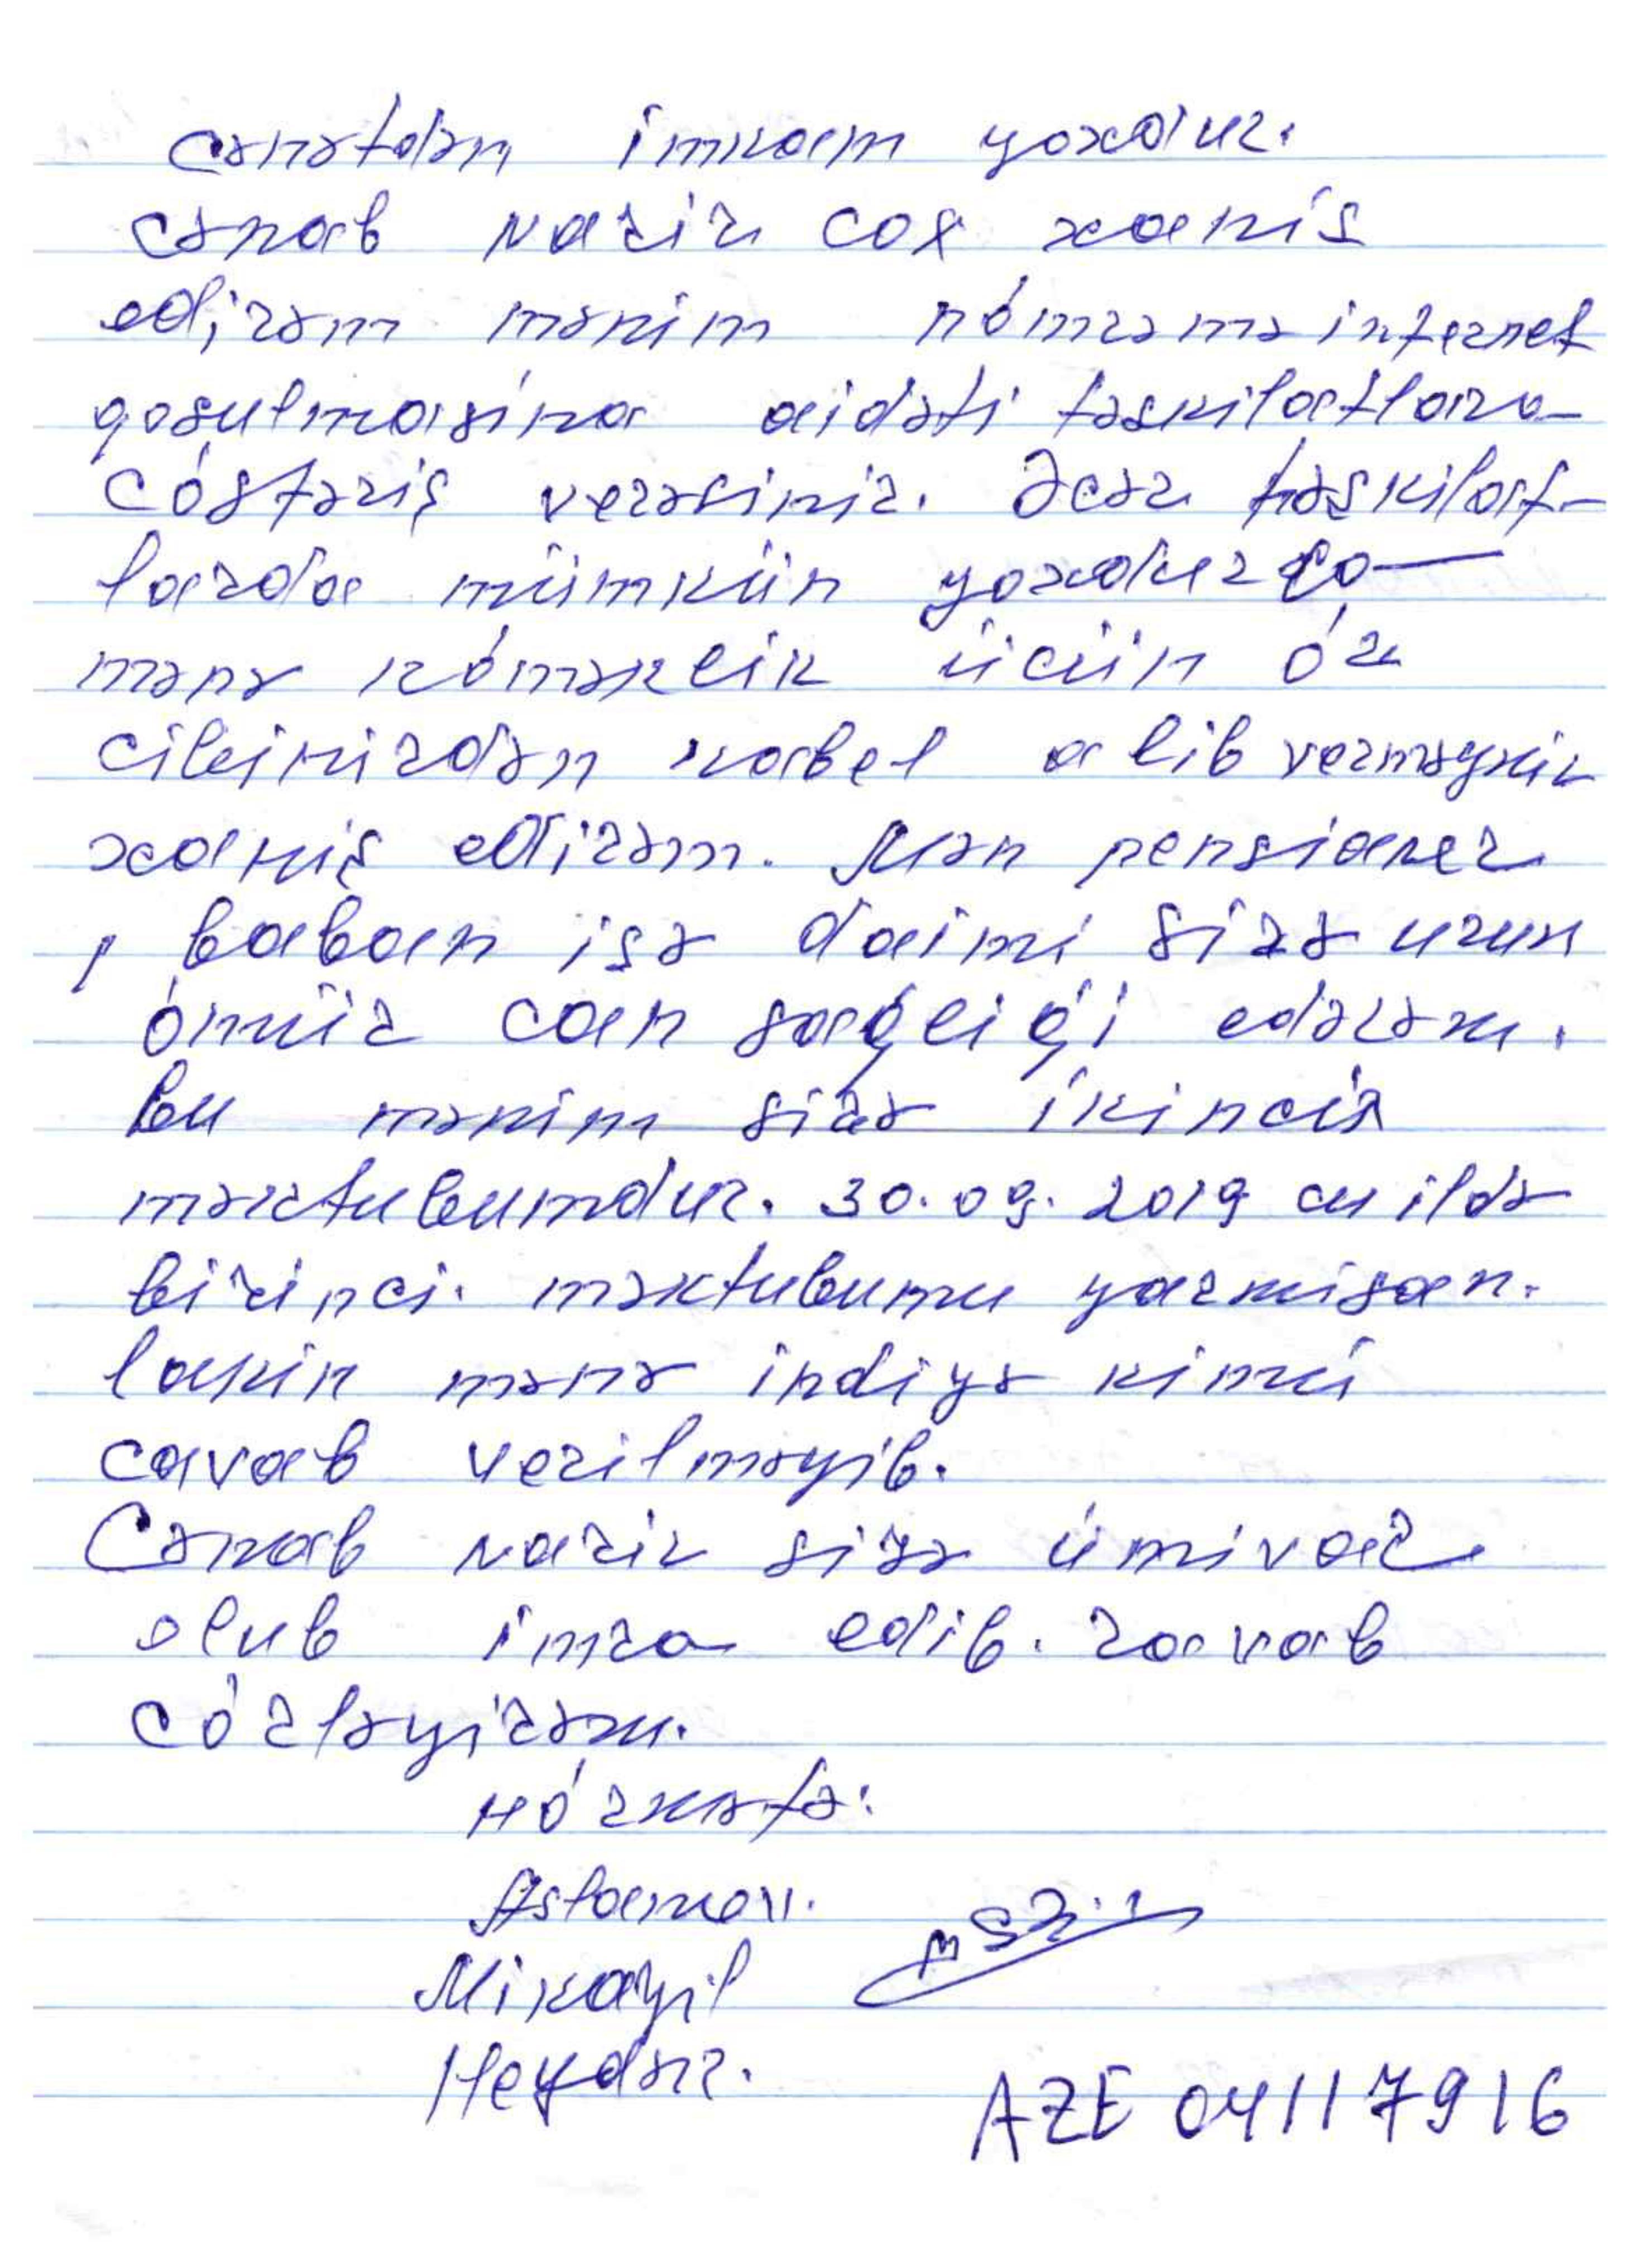 cəhətdən imkanım yoxdur.
Cənab Nazir cox xahiş
edirəm mənim nömrəmə internet
qoşulmasina aidəti təşkilatlara
cöstəriş verəsiniz. Əcər təşkilat-
larda mümkün yoxdursa
mənə köməklik ücün öz
cibinizdən kabel alib verməyniz
xahiş edirəm. Mən pensianer
baban isə daimi sizə uzun
ömür can sağliği edərəm.
bu mənim sizə ikinci
məktubumdur. 30.09.2019 cu ildə
birinci. məktubumu yazmişan.
lakin mənə indiyə kimi
cavab verilməyib.
Cənab nazir sizə ümivar
olub imza edib. zavab
cözləyirəm.
Hörmətə:
Aslanov.
Mikayil
Heydər.
AZE 04117916